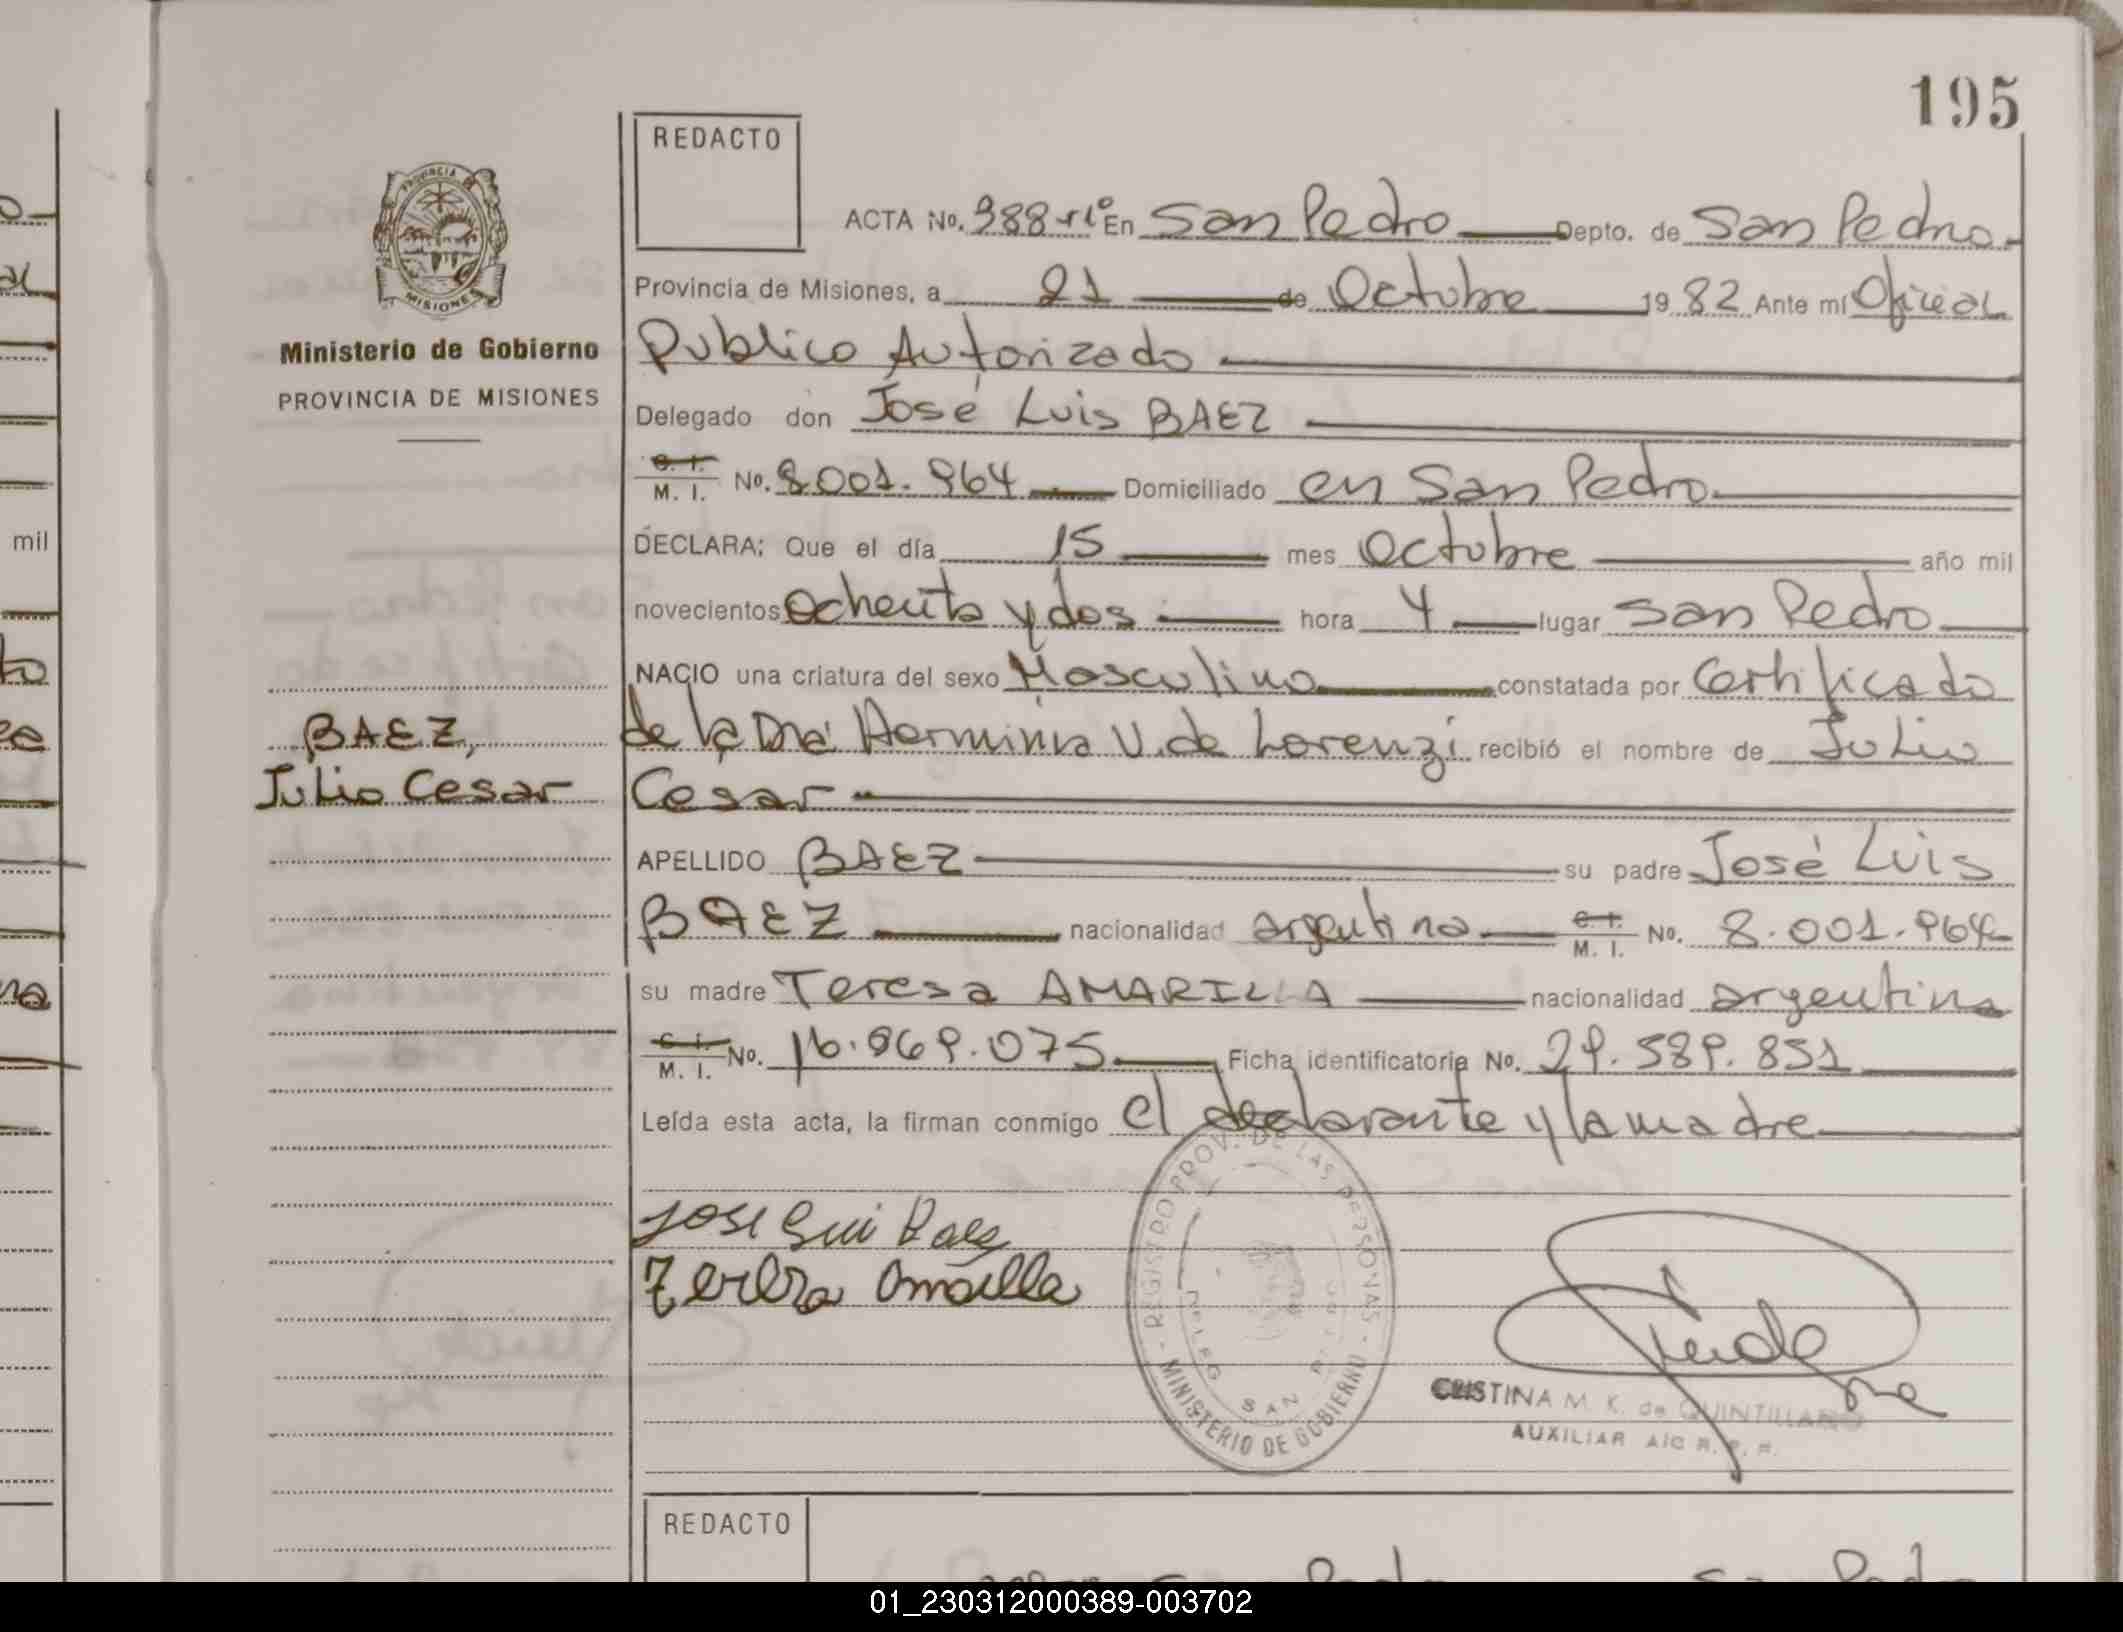 195
REDACTO
ACTA No. 388 T1° En San Pedro Depto. de San Pedro
Provincia de Misiones, a 21 de Octubre 1982 Ante mí Oficial
Publico Autorizado
Delegado don José Luis BAEZ
C. I. M. I. No. 8.001.964 Domiciliado en San Pedro
DECLARA: Que el día 15 mes Octubre año mil
novecientos Ochenta y dos hora 4 lugar San Pedro
NACIO una criatura del sexo Masculino constatada por Certificado
de la Dra Herminia V. de Lorenzi recibió el nombre de Julio
Cesar
APELLIDO BAEZ su padre José Luis
BAEZ nacionalidad argentina C. I. M. I. No. 8.001.964
su madre Teresa AMARILLA nacionalidad argentina
C. I. M. I. No. 16.969.075 Ficha identificatoria No. 29.589.851
Leída esta acta, la firman conmigo el declarante y la madre
Jose Lui Baes
Teresa Amarilla
REGISTRO PROV. DE LAS PERSONAS - MINISTERIO DE GOBIERNO -
DELEG SAN
CRISTINA M. K. de QUINTILLANO
AUXILIAR
PROVINCIA
MISIONES
Ministerio de Gobierno
PROVINCIA DE MISIONES
BAEZ,
Julio Cesar
mil
REDACTO
01_230312000389-003702